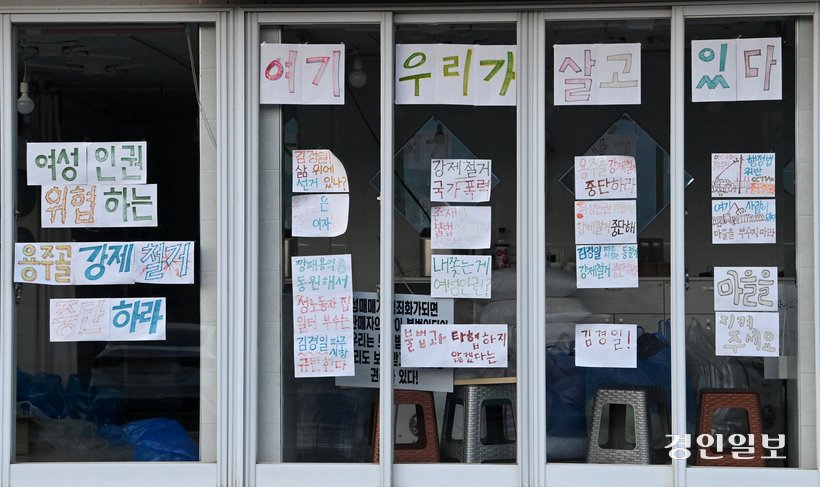 여기 우리가 살고 있다
여성 인권
위협 하는
용주골 강제 철거
중단 하라
김경일
삶 위에
선거 있나?
은
이자
깡패용역
동원해서
성노동자 집
일터 부수는
김경일 파주
시장
규탄한다
강제철거
국가폭력
내쫓는게
여성인권?
불법과 타협하지
않겠다는
용주골 강제철거
중단하라
여성인권
강제철거 중단해
김경일 파주
강제철거 중단하라
김경일!
행정법
위반
여기 사람이
마을을 부수지 마라
마을을
지켜
주세요
경인일보